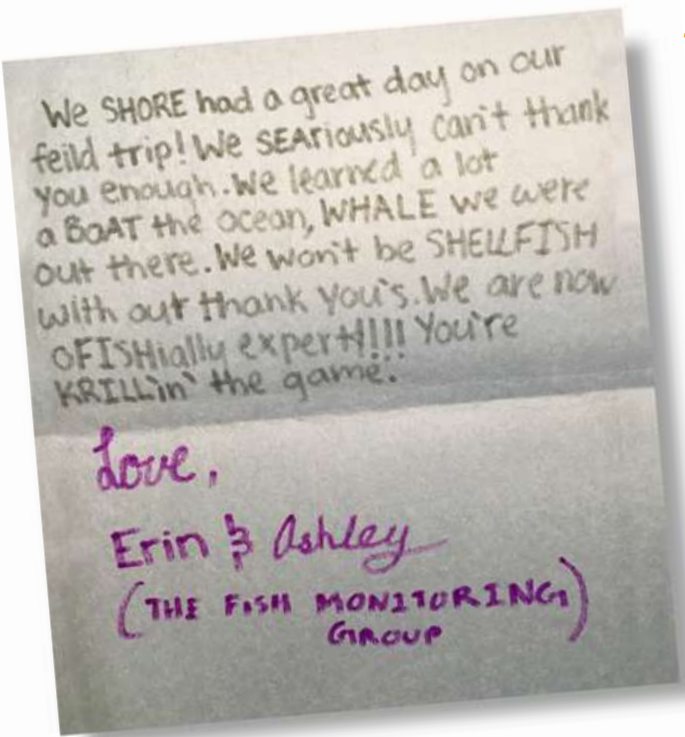 We SHORE had a great day on our
feild trip! We SEAriously can't thank
you enough. We learned a lot
a BOAT the ocean, WHALE we were
out there. We won't be SHELLFISH
with out thank you's. We are now
OFISHially experts!!! You're
KRILLin' the game.
Love,
Erin & Ashley
(THE FISH MONITORING
GROUP)